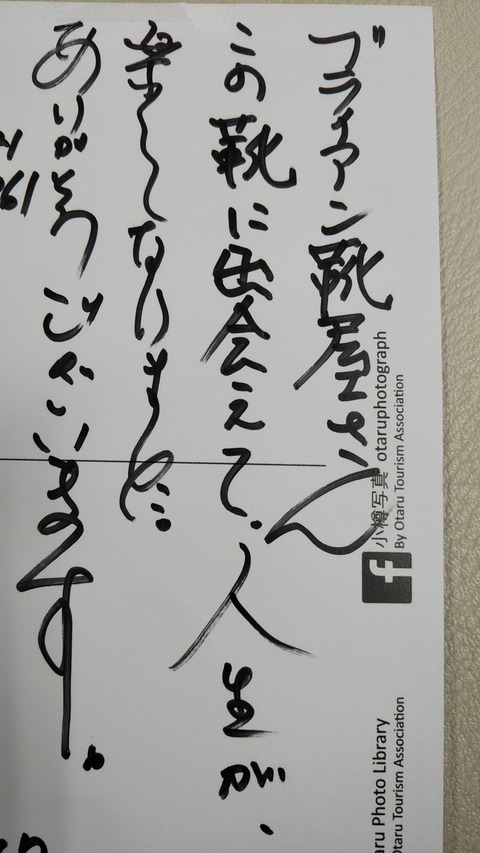 ブライアン靴屋さん
この靴に出会えて、人生が、
楽しくなりました
ありがとうございます。
小樽写真 otaruphotograph
By Otaru Tourism Association
f
aru Photo Library
Otaru Tourism Association